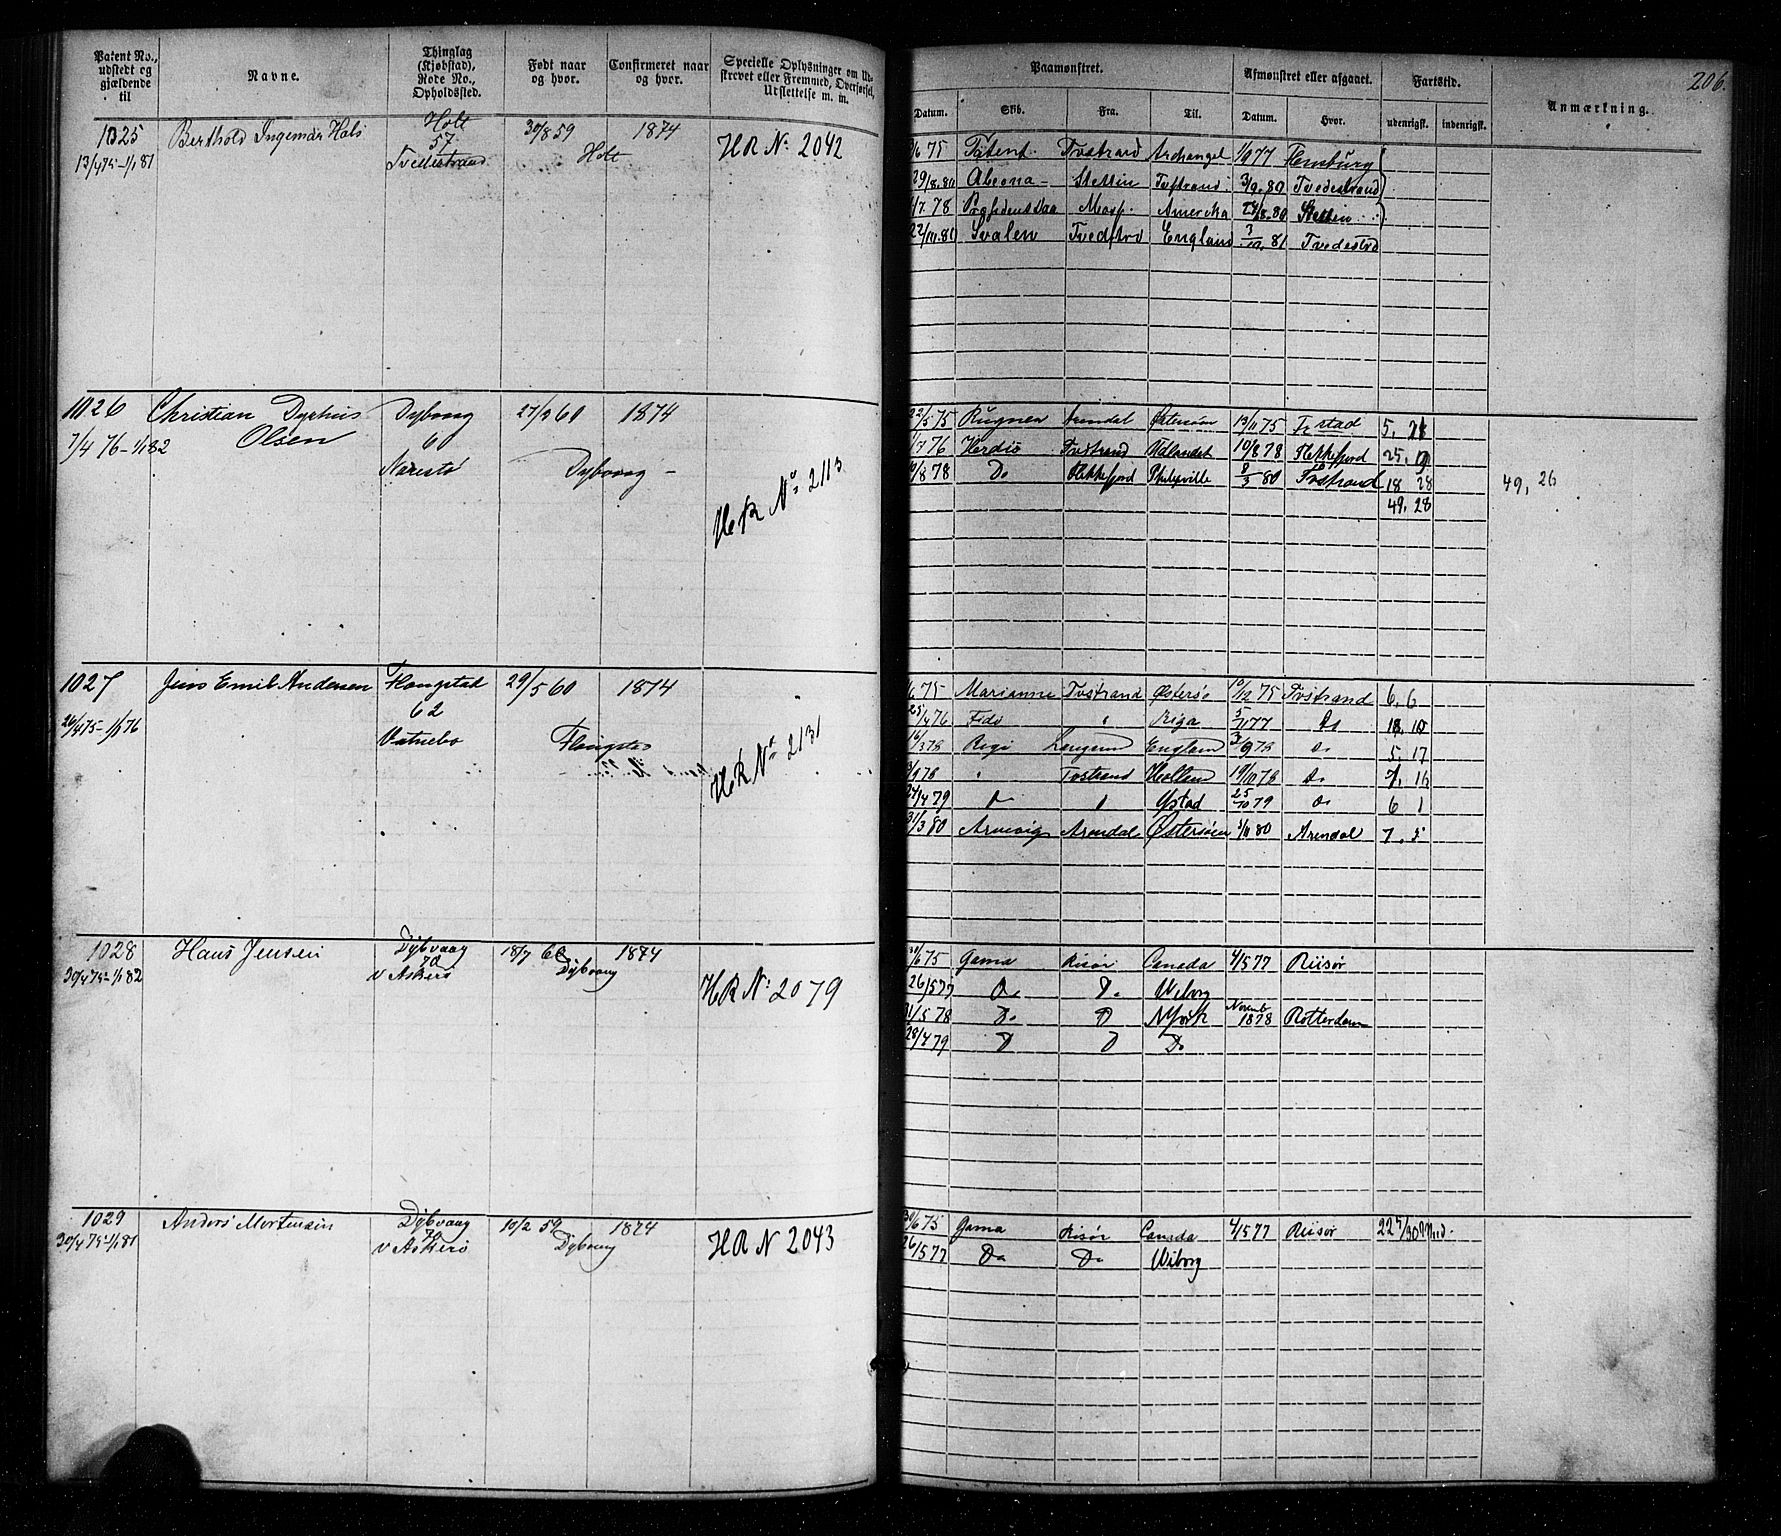 Patent No., udstedt og gjældende til
Navne.
Thinglag (Kjøbstad), Rode No., Opholdssted.
Født naar og hvor.
Confirmeret naar og hvor.
Specielle Oplysninger om Udskrevet eller Fremmed, Overførsel, Udslettelse m. m.
Paamønstret.
Afmønstret eller afgaaet.
Fartstid.
Anmærkning.
206.
Datum. Skib. Fra. Til. Datum. Hvor. udenrigsk. indenrigsk.
1025 Berthold Ingemar Hals Holt 30/8 59 1874 HR No 2042
57 Holt
13/4 75-1/1 81 Tvedestrand
/6 75 Patent Tvstrand Archangel 1/9 77 Flensburg
29/8.80 Abeona Stettin Tvstrand 3/9.80 Tvedestrand
/7.78 Amerika 24/8.80 Stettin
22/ 81 Svalen Tvedstrd England 3/10.81 Tvedestrd
1026 Christian Dyrhus Dybvaag 27/9 60 1874
Olsen 60
7/4 76-1/1 82 Narestø Dybvaag
HR No 2113
22/5 75 Arendal Østersøen 13/11 75 5. 21
/7 76 Herdis Tvstrand Udlandet 10/8 78 Flekkefjord 25. 9
10/8 78 Do Flekkefjord Philipville 8/3 80 Tvstrand 18 28
49. 28
49, 26
1027 Jens Emil Andersen Flangstad 29/5 60 1874
62
26/4 75-1/1 76 Vatnebo
HR No 2131
/6 75 Marianne Tvstrand Østersø 10/12 75 Tvstrand 6. 6
25/4 76 Fido " Riga 5/1 77 Do 18. 10
16/3 78 England 3/9 78 Do 5. 17
3/9 78 " Tvstrand Holland 19/11 78 Do 7. 16
24/4 79 Do " Ystad 25/10 79 Do 6 1
31/3 80 Arnevig Arendal Østersøen 5/11 80 Arendal 7. 5
1028 Hans Jensen Dybvaag 18/7 60 1874
70 Dybvaag
30/4 75-1/1 82 v Askerø HR No 2079
30/6 75 Gama Risør Canada 4/5 77 Riisør
26/5 77 Do Do Wiborg
31/5 78 Do D NYork Novemb 1878 Rotterdam
28/4 79 D D Do
1029 Anders Mortensen Dybvaag 10/2 59 1874
70 Dybvaag
30/4 75-1/1 81 v Askerø HR N 2043
30/6 75 Gama Risør Canada 4/5 77 Riisør 22 5/30 Mnd.
26/5 77 Do Do Wiborg